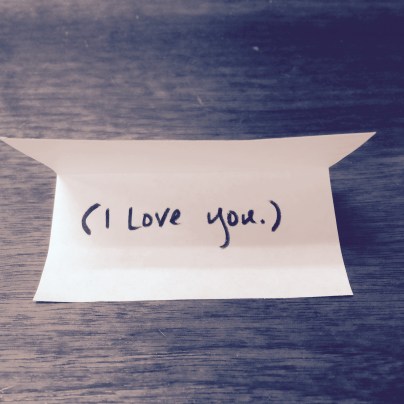 (I Love you.)